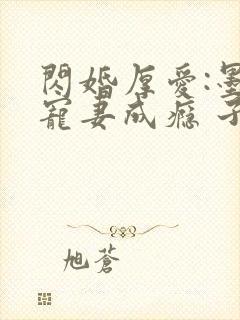 閃婚厚愛:墨
寵妻成癮 子
旭蒼